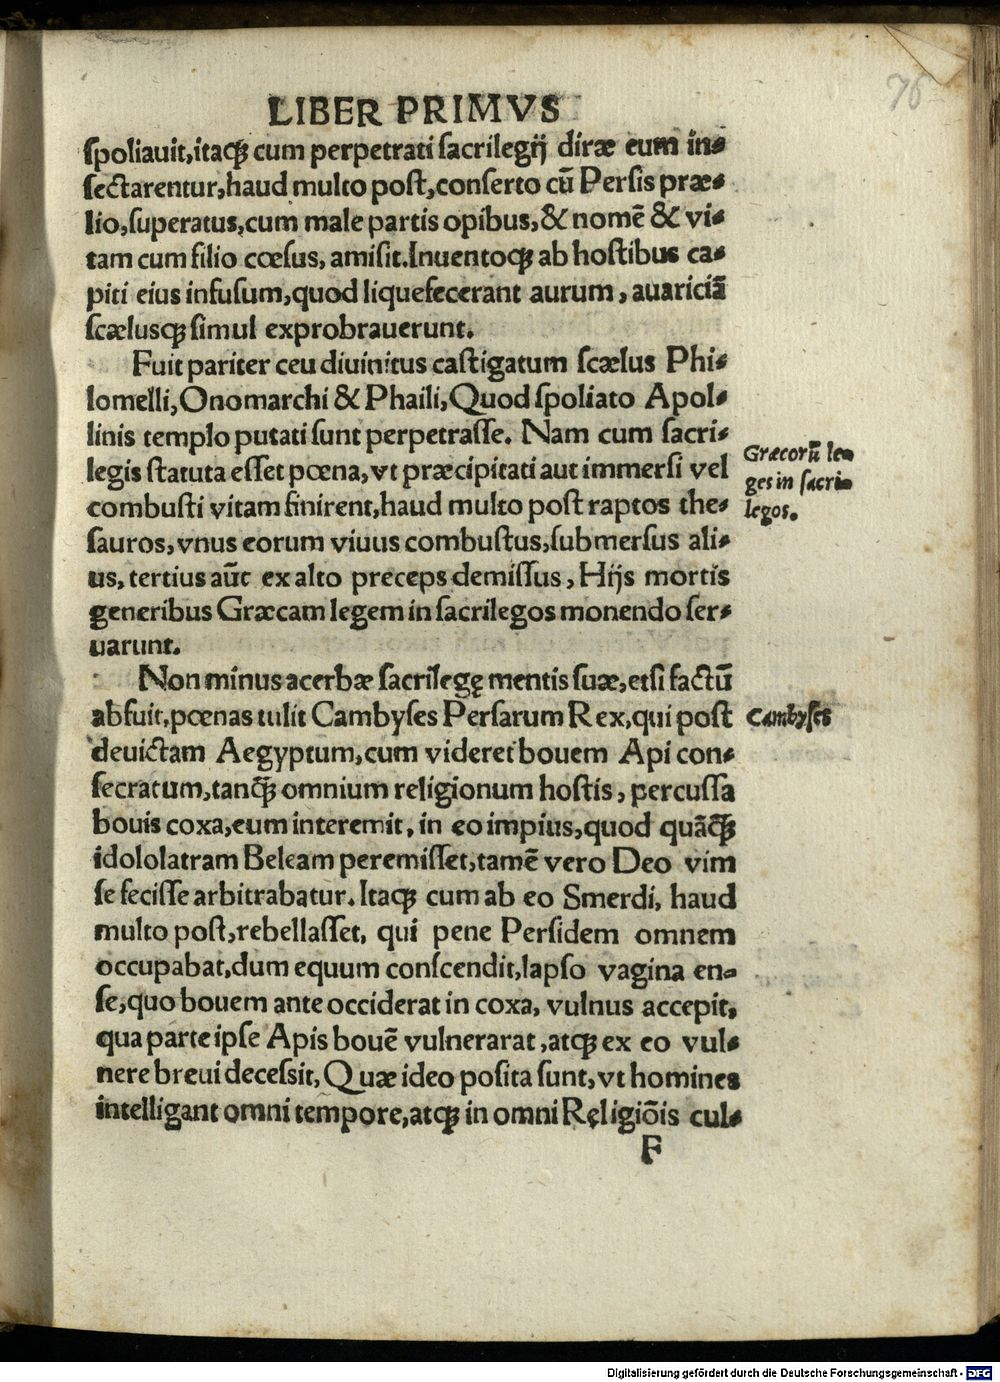 76
LIBER PRIMVS
ſpoliauit, itaqꝫ cum perpetrati ſacrilegij diræ eum in-
ſectarentur, haud multo poſt, conſerto cū Perſis præ-
lio, ſuperatus, cum male partis opibus, & nomē & vi-
tam cum filio cœſus, amiſit. Inuentoqꝫ ab hoſtibus ca-
piti eius infuſum, quod liquefecerant aurum, auariciā
ſcæluſqꝫ ſimul exprobrauerunt.
Fuit pariter ceu diuinitus caſtigatum ſcælus Phi-
lomelli, Onomarchi & Phaili, Quod ſpoliato Apol-
linis templo putati ſunt perpetraſſe. Nam cum ſacri-
legis ſtatuta eſſet pœna, vt præcipitati aut immerſi vel
combuſti vitam finirent, haud multo poſt raptos the-
ſauros, vnus eorum viuus combuſtus, ſubmerſus ali-
us, tertius aūt ex alto preceps demiſſus, Hijs mortis
generibus Græcam legem in ſacrilegos monendo ſer-
uarunt.
Græcorū le-
ges in ſacri-
legos.
Non minus acerbæ ſacrilegę mentis ſuæ, etſi factū
abfuit, pœnas tulit Cambyſes Perſarum Rex, qui poſt
deuictam Aegyptum, cum videret bouem Api con-
ſecratum, tanqꝫ̄ omnium religionum hoſtis, percuſſa
bouis coxa, eum interemit, in eo impius, quod quāqꝫ̄
idololatram Beleam peremiſſet, tamē vero Deo vim
ſe feciſſe arbitrabatur. Itaqꝫ cum ab eo Smerdi, haud
multo poſt, rebellaſſet, qui pene Perſidem omnem
occupabat, dum equum conſcendit, lapſo vagina en-
ſe, quo bouem ante occiderat in coxa, vulnus accepit,
qua parte ipſe Apis bouē vulnerarat, atqꝫ ex eo vul-
nere breui deceſſit, Quæ ideo poſita ſunt, vt homines
intelligant omni tempore, atqꝫ in omni Ręligiōis cul-
Cambyſes
F
Digitalisierung gefördert durch die Deutsche Forschungsgemeinschaft - DFG